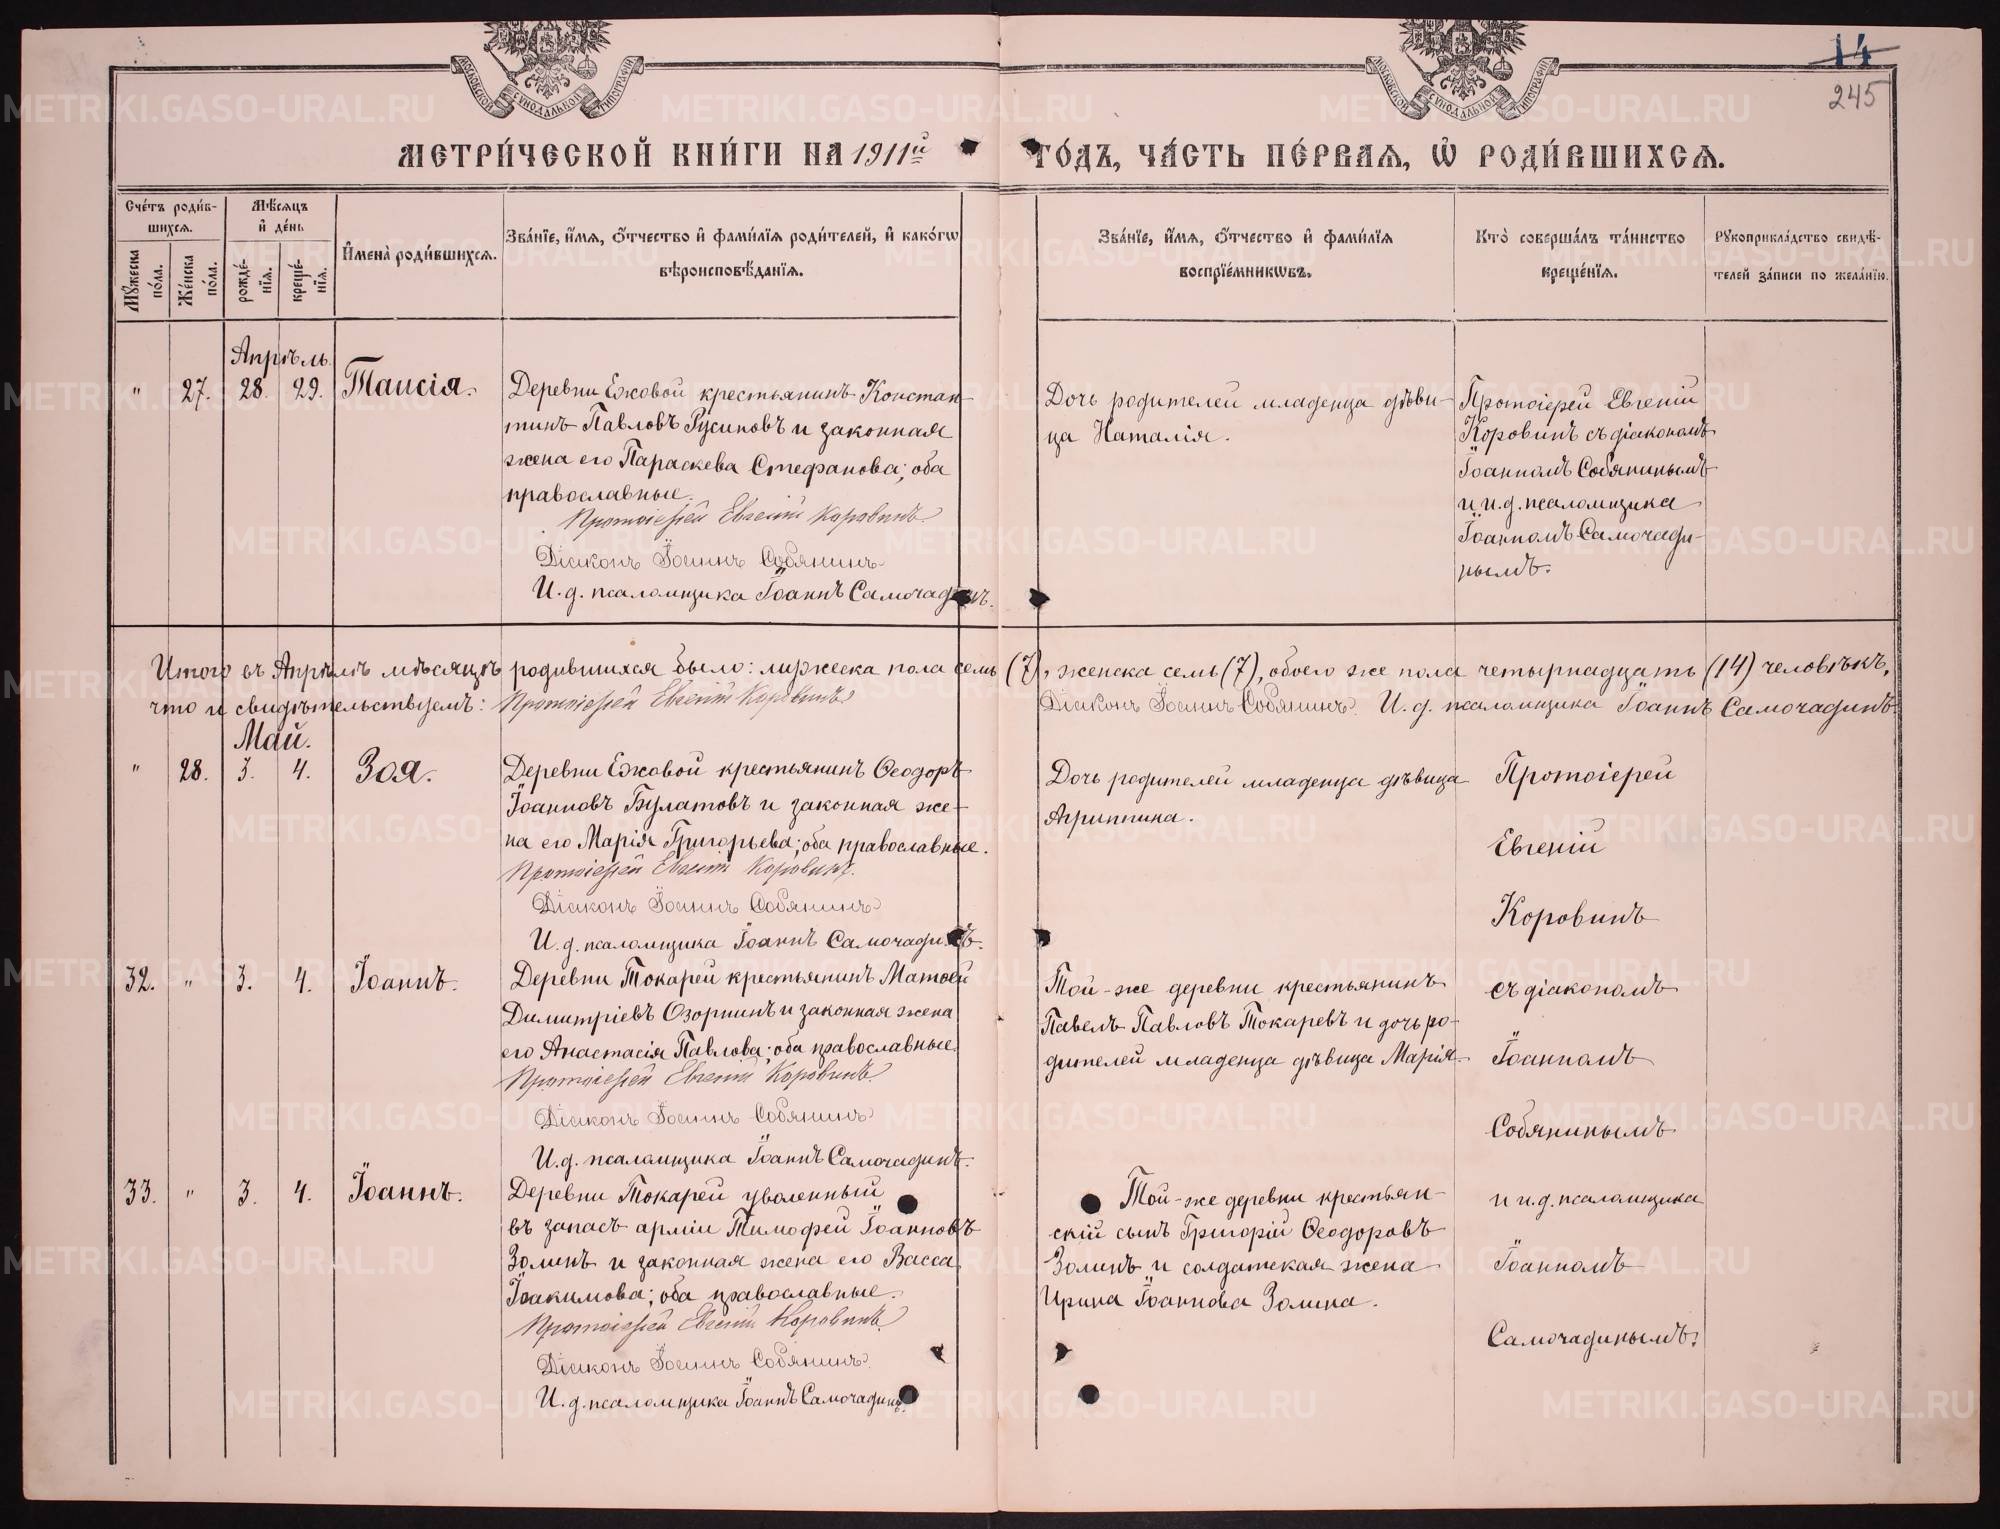 14
245
МОСКОВСКОЙ СѴНОДАЛЬНОЙ ТИПОГРАФІИ
МОСКОВСКОЙ СѴНОДАЛЬНОЙ ТИПОГРАФІИ
МЕТРИ́ЧЕСКОЙ КНИ́ГИ НА 1911й ГО́ДЪ, ЧА́СТЬ ПЕ́РВАЯ, Ѽ РОДИ́ВШИХСЯ.
Сче́тъ роди́в-
шихся.
Мѣ́сяцъ
и҆ де́нь
Мꙋ́жеска по́ла.
Же́нска по́ла.
рожде́-
нїя.
креще́-
нїя.
И҆мена̀ роди́вшихся.
Зва́нїе, и҆́мя, ѻ҆́тчество и҆ фами́лїя роди́телей, и҆ како́гѡ
вѣроисповѣ́данїя.
Зва́нїе, и҆́мя, ѻ҆́тчество и҆ фами́лїя
воспрїе́мникѡвъ.
Кто̀ соверша́лъ та́инство
креще́нїя.
Рꙋкоприкла́дство свидѣ́-
телей за́писи по жела́нїю.
Апрѣль.
" 27. 28. 29. Таисія.
Деревни Ежовой крестьянинъ Констан-
тинъ Павловъ Русиновъ и законная
жена его Параскева Стефанова; оба
православные.
Протоіерей Евгеній Коровинъ
Діаконъ Іоаннъ Собянинъ
И.д. псаломщика Іоаннъ Самочадинъ.
Дочь родителей младенца дѣви-
ца Наталія.
Протоіерей Евгеній
Коровинъ съ діакономъ
Іоанномъ Собянинымъ
и и.д. псаломщика
Іоанномъ Самочади-
нымъ.
Итого въ Апрѣлѣ мѣсяцѣ родившихся было: мужеска пола семь (7), женска семь (7), обоего же пола четырнадцать (14) человѣкъ,
что и свидѣтельствуемъ: Протоіерей Евгеній Коровинъ Діаконъ Іоаннъ Собянинъ. И.д. псаломщика Іоаннъ Самочадинъ.
Май.
" 28. 3. 4. Зоя.
Деревни Ежовой крестьянинъ Ѳеодоръ
Іоанновъ Булатовъ и законная же-
на его Марія Григорьева; оба православные.
Протоіерей Евгеній Коровинъ.
Діаконъ Іоаннъ Собянинъ
И.д. псаломщика Іоаннъ Самочадинъ.
Дочь родителей младенца дѣвица
Агриппина.
Протоіерей
Евгеній
Коровинъ
съ діакономъ
Іоанномъ
Собянинымъ
и и.д. псаломщика
Іоанномъ
Самочадинымъ.
32. " 3. 4. Іоаннъ.
Деревни Токарей крестьянинъ Матѳей
Димитріевъ Озорнинъ и законная жена
его Анастасія Павлова; оба православные.
Протоіерей Евгеній Коровинъ.
Діаконъ Іоаннъ Собянинъ
И.д. псаломщика Іоаннъ Самочадинъ.
Той-же деревни крестьянинъ
Павелъ Павловъ Токаревъ и дочь ро-
дителей младенца дѣвица Марія.
33. " 3. 4. Іоаннъ.
Деревни Токарей уволенный
въ запасъ арміи Тимофей Іоанновъ
Золинъ и законная жена его Васса
Іоакимова; оба православные.
Протоіерей Евгеній Коровинъ.
Діаконъ Іоаннъ Собянинъ.
И.д. псаломщика Іоаннъ Самочадинъ.
Той-же деревни крестьян-
скій сынъ Григорій Ѳеодоровъ
Золинъ и солдатская жена
Ирина Іоаннова Золина.
METRIKI.GASO-URAL.RU